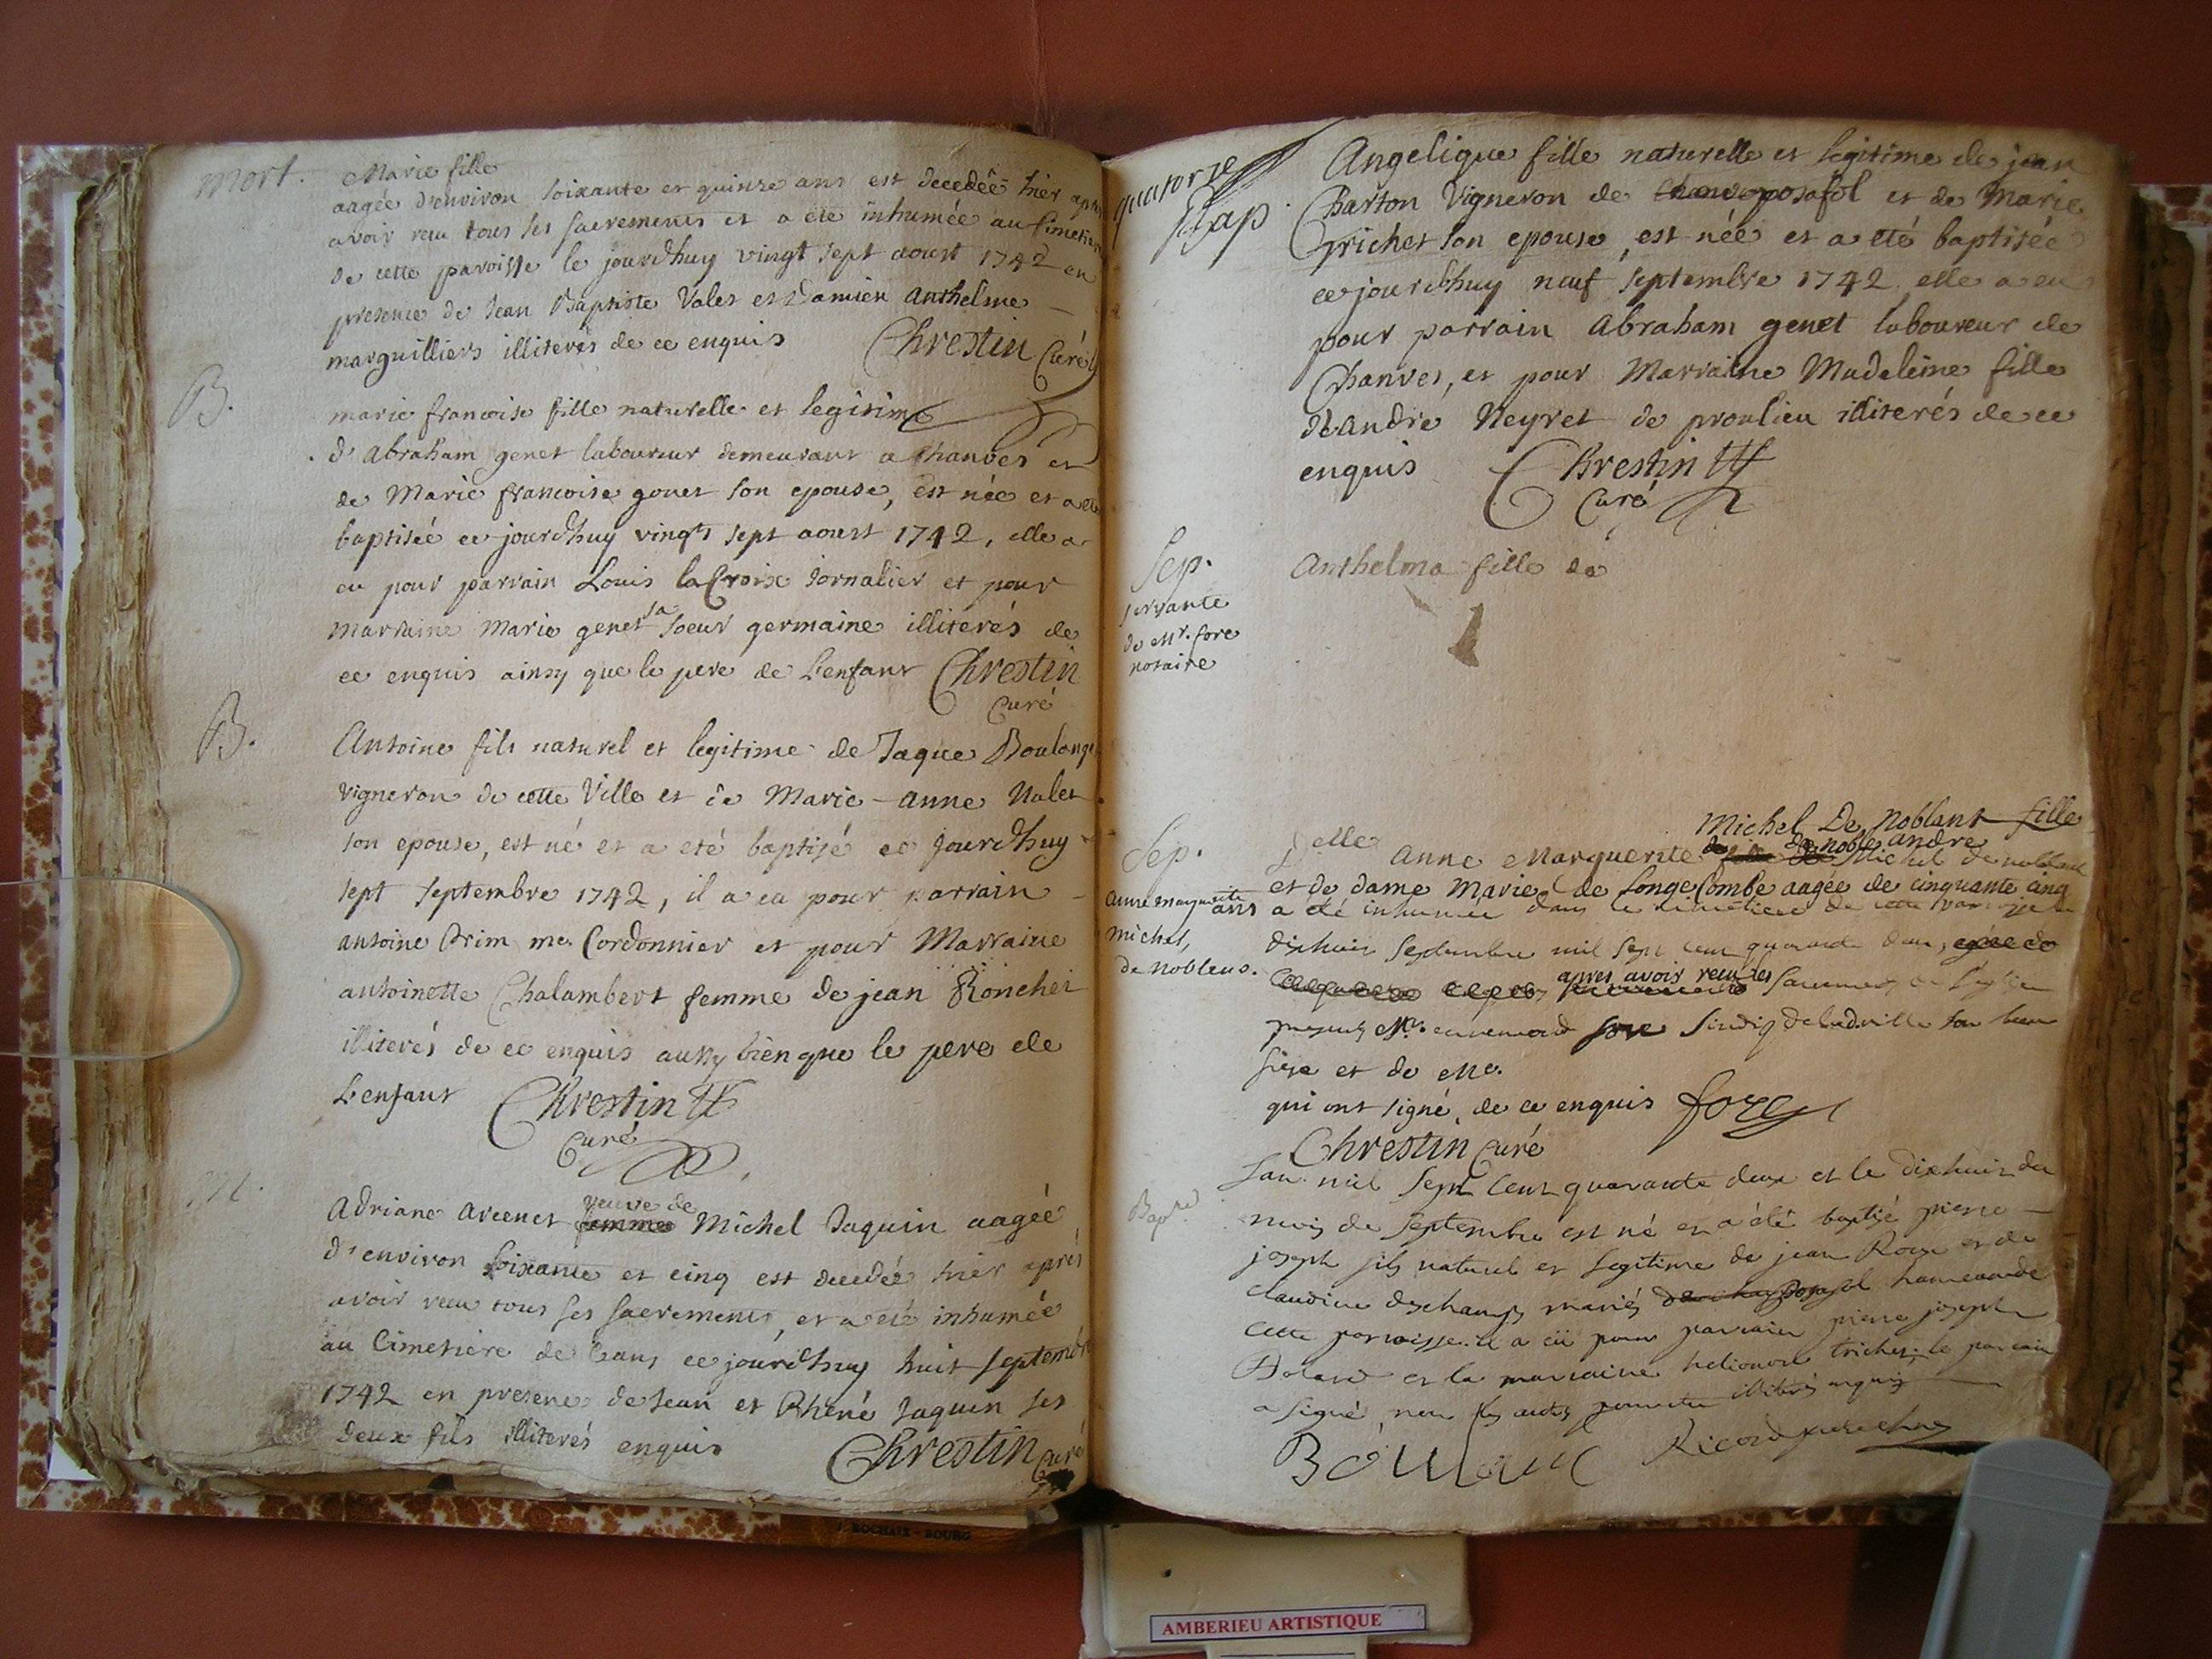 mort.
Marie fille
aagée d'environ soixante et quinze ans est decedée hier apres
avoir recu tous ses sacrements et a eté inhumée au Cimetiere
de cette paroisse le jourdhuy vingt sept aoust 1742 en
presence de Jean Baptiste Valet et Damien Anthelme
marguilliers illiterés de ce enquis Chrestin Curé
B.
marie francoise fille naturelle et legitime
d'Abraham genet laboureur demeurant a Chanves et
de Marie francoise gonet son epouse, est née et a eté
baptisée ce jourdhuy vingt sept aoust 1742, elle a
eu pour parrain Louis la Croix Jornalier et pour
marraine Marie genet sa soeur germaine illiterés de
ce enquis ainsy que le pere de L'enfant Chrestin
Curé
B.
Antoine fils naturel et legitime de Jaque Boulange
vigneron de cette Ville et de Marie-Anne Valet
son epouse, est né et a eté baptisé ce Jourdhuy
sept Septembre 1742, il a eu pour parrain
antoine Prim me. Cordonnier et pour Marraine
antoinette Chalambert femme de jean Ronchet
illiterés de ce enquis aussy bien que le pere de
L'enfant Chrestin
Curé
M.
Adriane Arcenet femme veuve de Michel Jaquin aagée
d'environ soixante et cinq est decedée hier aprés
avoir recu tous ses sacrements, et a eté inhumée
au Cimetiere de ceans ce jourdhuy huit septembre
1742 en presence de Jean et Rhené Jaquin ses
deux fils illiterés enquis Chrestin Curé
quatorze
Bap.
Angelique fille naturelle et legitime de jean
Charton Vigneron de Chauxposafol et de Marie
Trichet son epouse, est née et a eté baptisée
ce jourdhuy neuf septembre 1742, elle a eu
pour parrain Abraham genet laboureur de
Chanves, et pour Marraine Madeleine fille
d'André Neyret de proulieu illiterés de ce
enquis Chrestin
Curé
Sep.
servante
de Mr. fore
notaire
Anthelma fille de
Sep.
anne marguerite
michel,
de noblens.
Michel De Noblant fille
Delle Anne Marguerite de noble andre Michel de noblens
et de dame Marie de Longecombe aagée de cinquante cinq
ans a eté inhumée dans le cimetiere de cette paroisse le
dixhuit Septembre mil sept cent quarante deux,
apres avoir recu les sacrements de l'eglise
presents Mr. fore Sindiq de ladville son beau
frere et de Me.
qui ont signé, de ce enquis fore
Chrestin Curé
Bapt.
Lan mil sept cent quarante deux et le dixhuit du
mois de septembre est né et a été baptisé pierre
joseph fils naturel et legitime de jean Roux et de
claudine deschamps mariés de chauposafol hameau de
cette parroisse. il a eü pour parrain pierre joseph
et la marraine trichet. le parrain
a signé, non les autres pour etre illiterés enquis
Ricord
J. ROCHAIX - BOURG
AMBERIEU ARTISTIQUE